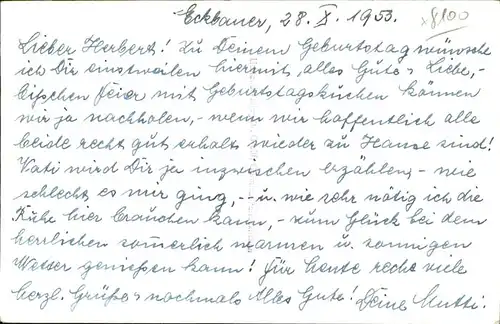 Eckbauer, 28. X. 1953.
8100
Lieber Herbert! Zu Deinem Geburtstag wünsche
ich Dir einstweilen hiermit alles Gute u. Liebe, -
bißchen Feier mit Geburtstagskuchen können
wir ja nachholen, - wenn wir hoffentlich alle
beide recht gut erholt wieder zu Hause sind!
Vati wird Dir ja inzwischen erzählen, - wie
schlecht es mir ging, - - u. wie sehr nötig ich die
Ruhe hier brauchen kann, - zum Glück bei dem
herrlichen sommerlich warmen u. sonnigen
Wetter genießen kann! Für heute recht viele
herzl. Grüße u. nochmals Alles Gute! Deine Mutti.